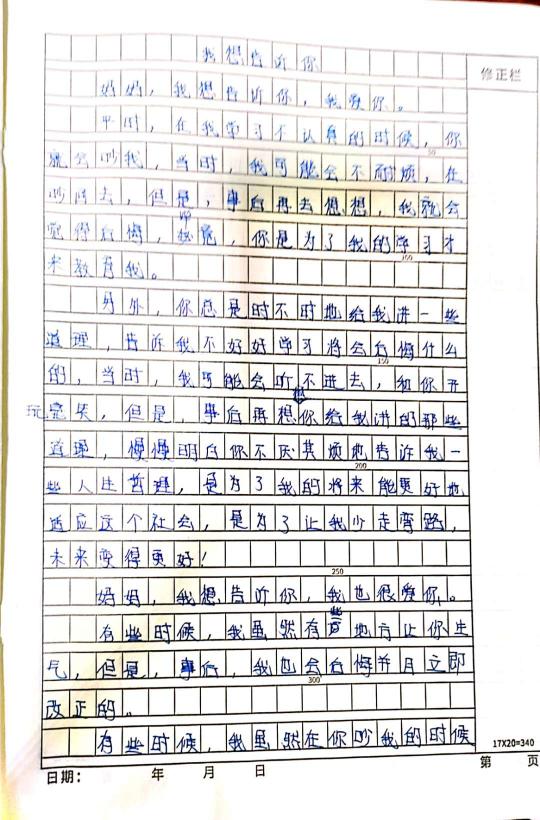 我想告诉你
修正栏
妈妈，我想告诉你，我爱你。
平时，在我学习不认真的时候，你
50
就会吵我，当时，我可能会不耐烦，在
吵回去，但是，事后再去想想，我就会
觉得后悔，
你是为了我的学习才
100
来教育我。
另外，你总是时不时地给我讲一些
道理，告诉我不好好学习将会后悔什么
150
的，当时，我可能会听不进去，和你开
玩笑，但是，事后再想想你给我讲的那些
道理，慢慢明白你不厌其烦地告诉我一
200
些人生哲理，是为了我的将来能更好地
适应这个社会，是为了让我少走弯路，
未来变得更好！
250
妈妈，我想告诉你，我也很爱你。
有些时候，我虽然有些地方让你生
气，但是，事后，我也会后悔并且立即
300
改正的。
有些时候，我虽然在你吵我的时候
17X20=340
日期： 年 月 日 第 页